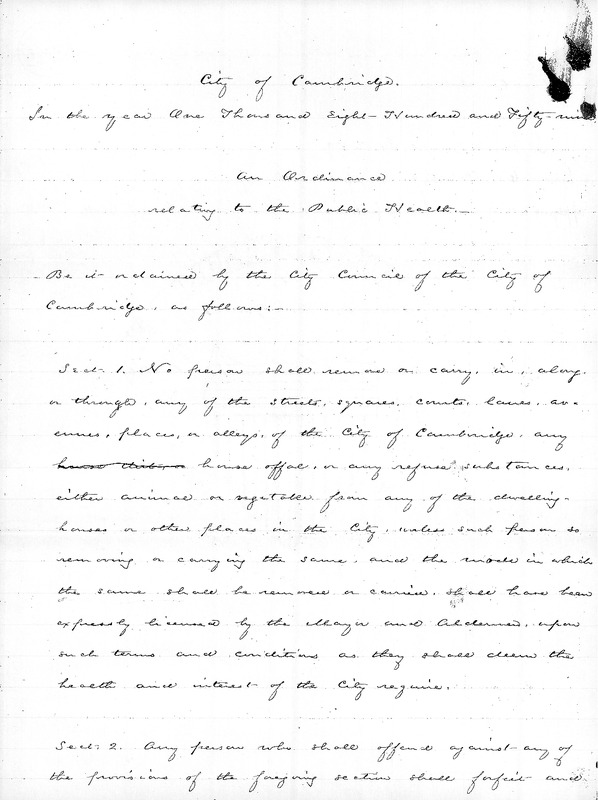 City of Cambridge.
In the year One Thousand Eight-Hundred and Fifty-nine
An Ordinance
relating to the Public Health.—
Be it ordained by the City Council of the City of
Cambridge, as follows:—
Sect. 1. No person shall remove or carry, in, along,
or through, any of the streets, squares, courts, lanes, av-
enues, places, or alleys, of the City of Cambridge, any
house offal, or any refuse substances,
either animal or vegetable from any of the dwelling-
houses or other places in the City, unless such person so
removing or carrying the same, and the mode in which
the same shall be removed or carried, shall have been
expressly licensed by the Mayor and Aldermen, upon
such terms and conditions as they shall deem the
health and interest of the City require.
Sect: 2. Any person who shall offend against any of
the provisions of the foregoing section shall forfeit and